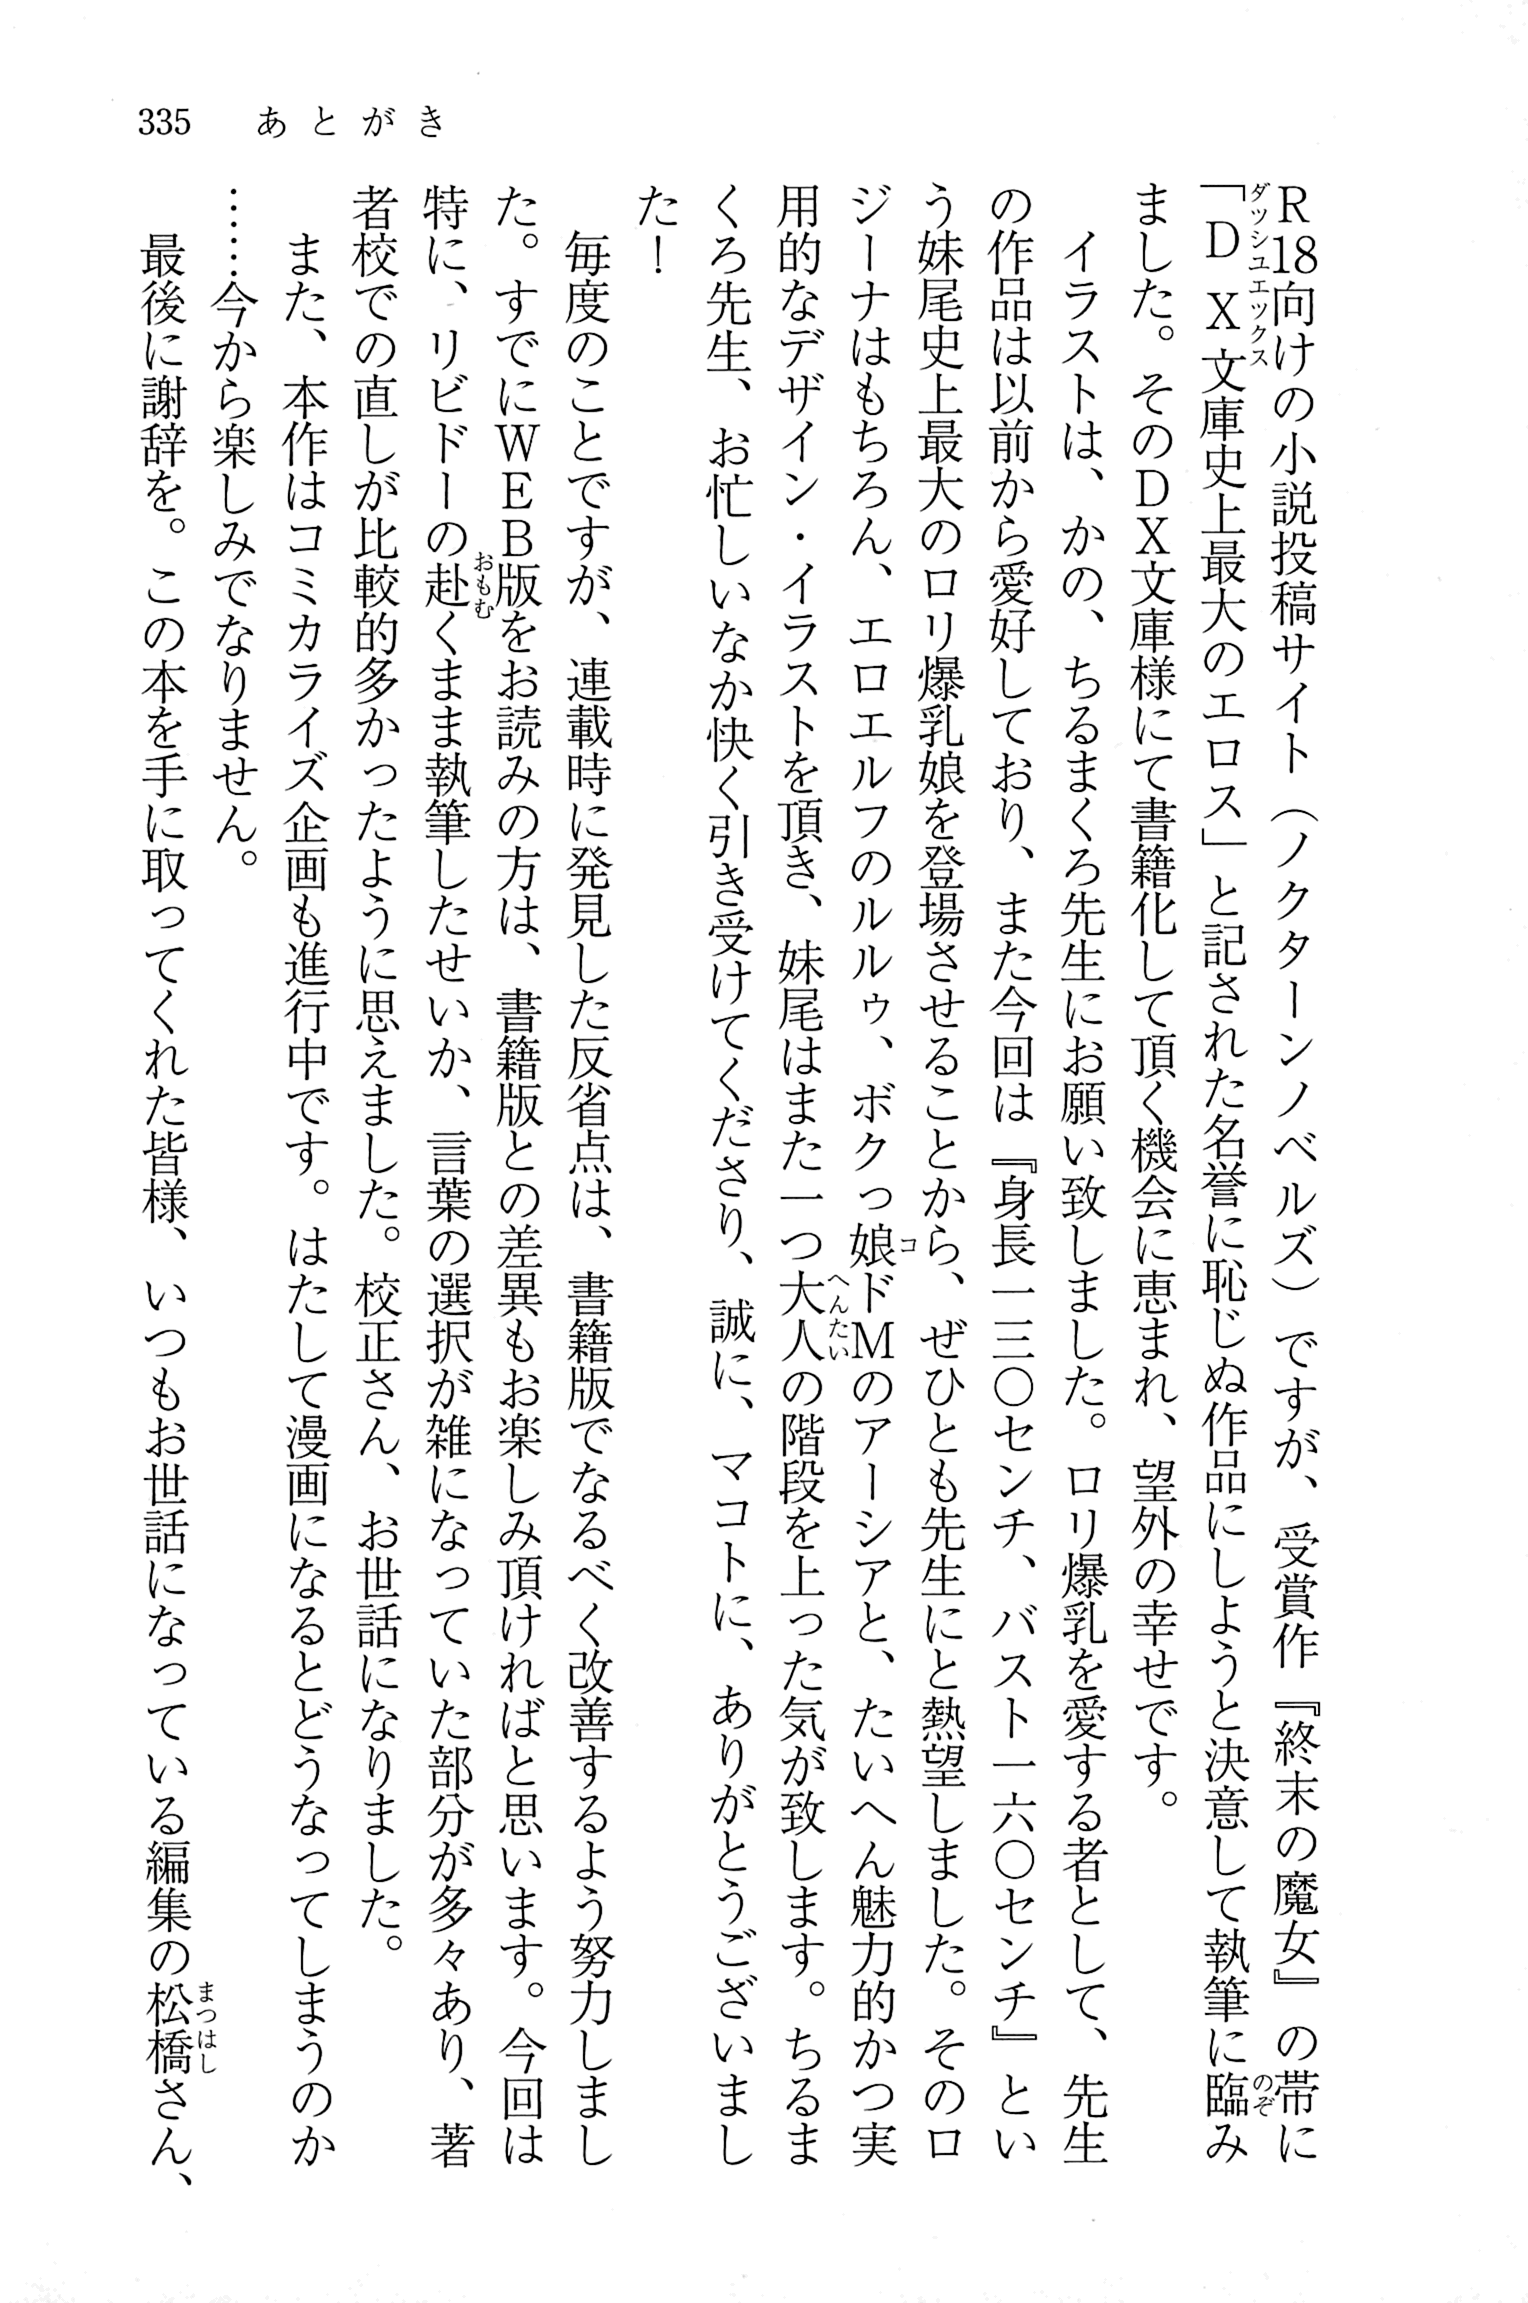 335　あとがき
R18向けの小説投稿サイト（ノクターンノベルズ）ですが、受賞作『終末の魔女』の帯に
「DX文庫史上最大のエロス」と記された名誉に恥じぬ作品にしようと決意して執筆に臨み
ダッシュエックス
のぞ
ました。そのDX文庫様にて書籍化して頂く機会に恵まれ、望外の幸せです。
　イラストは、かの、ちるまくろ先生にお願い致しました。ロリ爆乳を愛する者として、先生
の作品は以前から愛好しており、また今回は『身長一三〇センチ、バスト一六〇センチ』とい
う妹尾史上最大のロリ爆乳娘を登場させることから、ぜひとも先生にと熱望しました。そのロ
ジーナはもちろん、エロエルフのルルゥ、ボクっ娘ドMのアーシアと、たいへん魅力的かつ実
コ
用的なデザイン・イラストを頂き、妹尾はまた一つ大人の階段を上った気が致します。ちるま
へんたい
くろ先生、お忙しいなか快く引き受けてくださり、誠に、マコトに、ありがとうございまし
た！
　毎度のことですが、連載時に発見した反省点は、書籍版でなるべく改善するよう努力しまし
た。すでにWEB版をお読みの方は、書籍版との差異もお楽しみ頂ければと思います。今回は
特に、リビドーの赴くまま執筆したせいか、言葉の選択が雑になっていた部分が多々あり、著
おもむ
者校での直しが比較的多かったように思えました。校正さん、お世話になりました。
　また、本作はコミカライズ企画も進行中です。はたして漫画になるとどうなってしまうのか
……今から楽しみでなりません。
　最後に謝辞を。この本を手に取ってくれた皆様、いつもお世話になっている編集の松橋さん、
まつはし